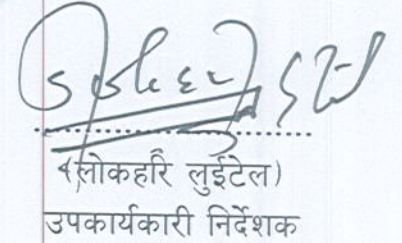 (लोकहरि लुईटेल)
उपकार्यकारी निर्देशक